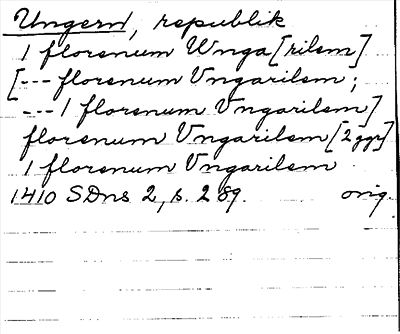 Ungern, republik
1 florenum Unga[rilem]
[--- florenum Vngarilem;
---1 florenum Vngarilem]
florenum Vngarilem [2 ggr]
1 florenum Vngarilem
1410 SDns 2, s. 289. orig.